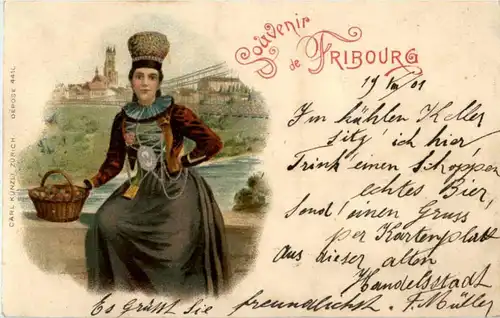 Souvenir
de FRIBOURG
19 VIII 01
Im kühlen Keller
sitz' ich hier
Trink einen Schoppen
echtes Bier,
Send' einen Gruss
per Kartenplatt
Aus dieser alten
Handelsstadt
Es grüsst Sie freundlichst. F. Müller
CARL KÜNZLI, ZÜRICH DÉPOSÉ 441L